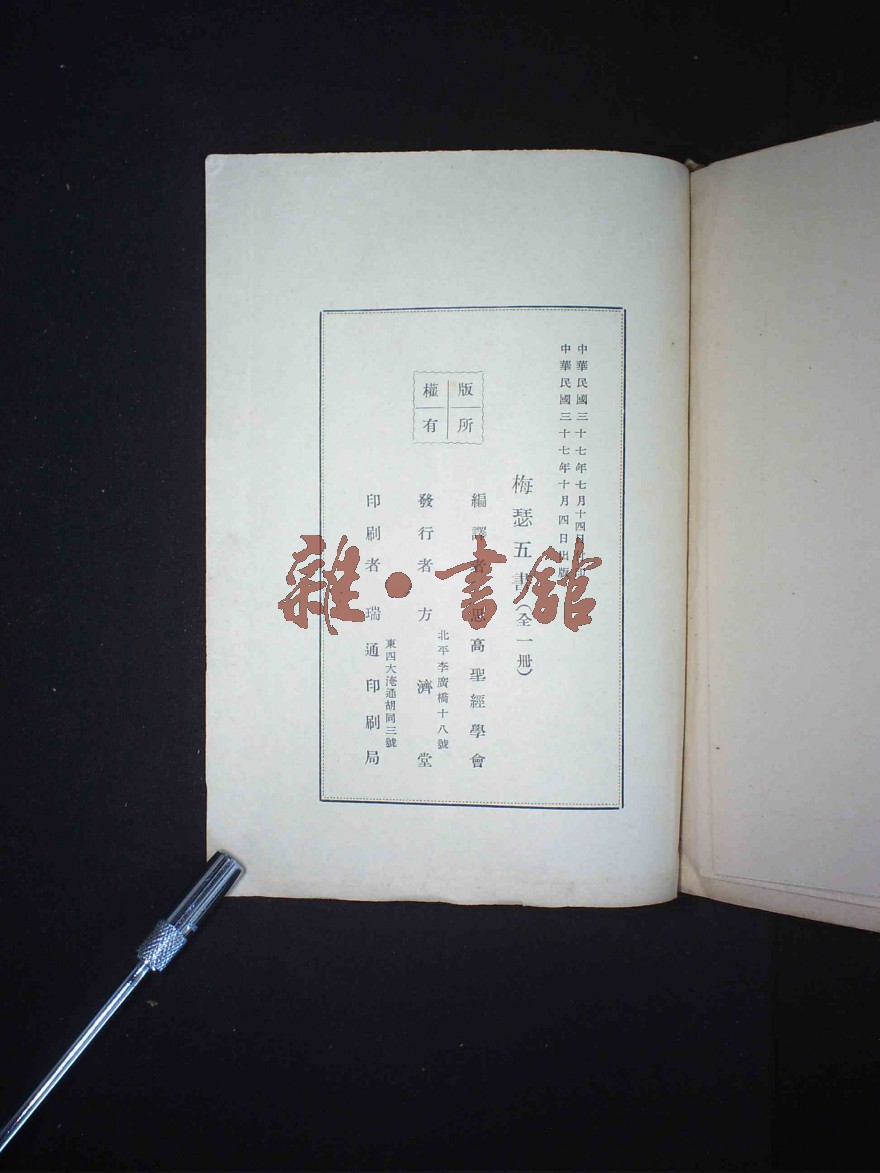 中華民國三十七年七月十四日付印
中華民國三十七年十月四日出版
梅瑟五書（全一冊）
版所
權有
編譯者 思高聖經學會
北平李廣橋十八號
發行者 方濟堂
東四大淹通胡同三號
印刷者 瑞通印刷局
雜·書館